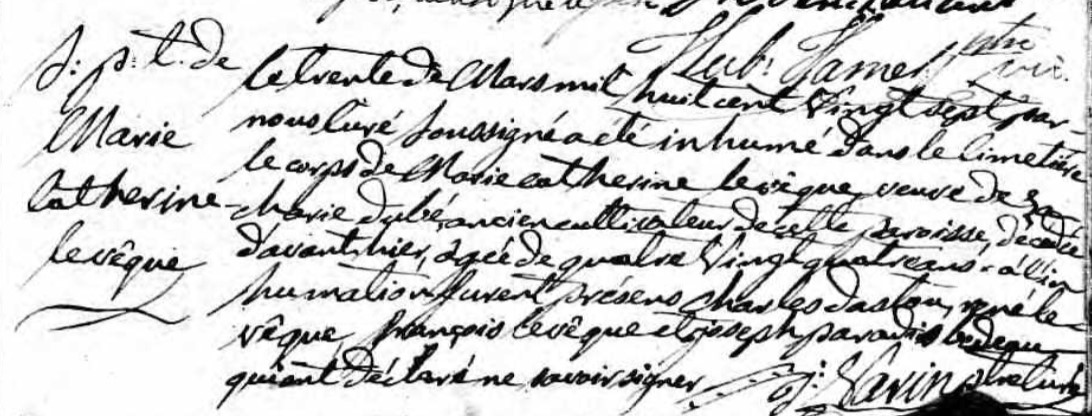 Hub: Hamel ptre
S: p. t. de
Marie
Catherine
levêque
le trente de Mars mil huit cent vingt sept par
nous Curé Soussigné a été inhumé dans le Cimetière
le corps de Marie catherine levêque veuve de
Marie dubé, ancien cultivateur de cette paroisse, décédée
d'avant hier, agée de quatre Vingt quatre ans. à l'in
humation furent présens charles dastou, rené le
vêque françois levêque et joseph paradis bedeau
qui ont déclaré ne savoir signer J: Varin ptre Curé